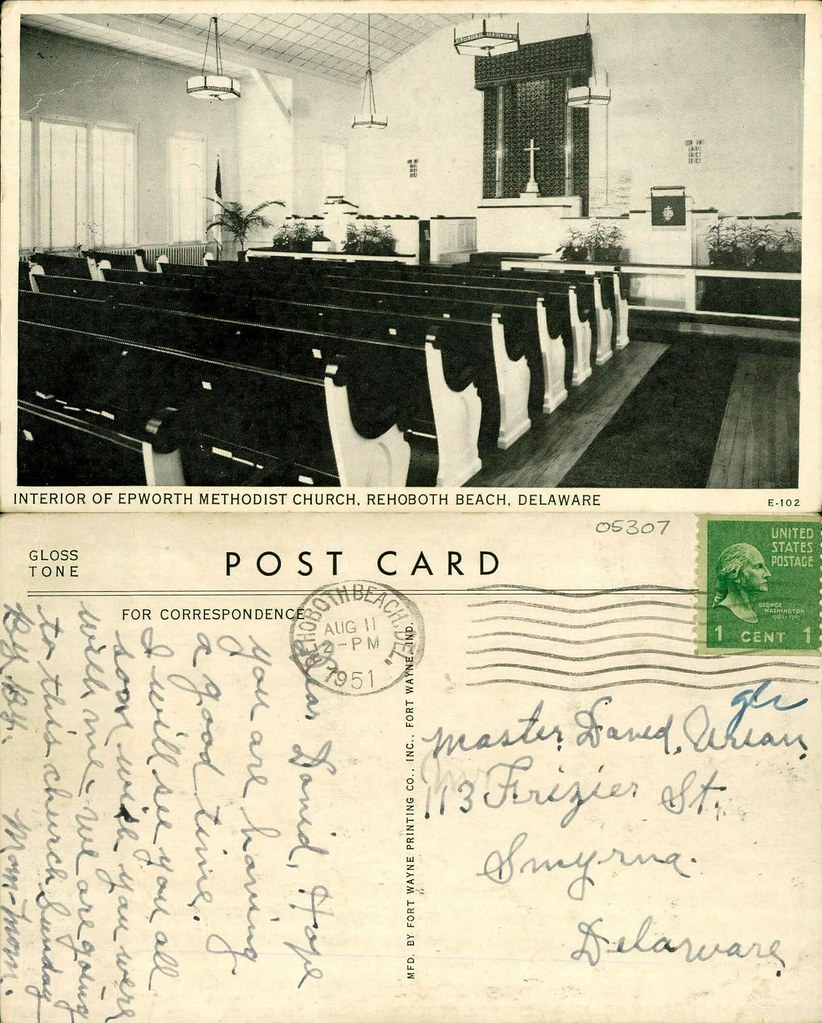 INTERIOR OF EPWORTH METHODIST CHURCH, REHOBOTH BEACH, DELAWARE
E-102
05307
GLOSS
TONE
POST CARD
UNITED
STATES
POSTAGE
GEORGE
WASHINGTON
1 CENT 1
FOR CORRESPONDENCE
REHOBOTH BEACH, DEL.
AUG 11
2-PM
1951
MFD. BY FORT WAYNE PRINTING CO., INC., FORT WAYNE, IND.
Dear David, Hope
you are having
a good time.
I will see you all
soon wish you were
with me - we are going
to this church Sunday
By By. Mom-Mom.
Master David, Urian,
113 Frizier St.
Smyrna.
Delaware.